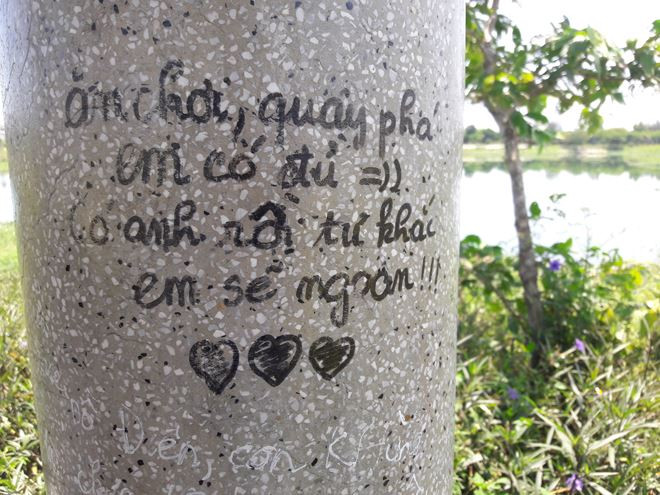 ăn chơi, quậy phá
em có đủ =))
Có anh rồi tự khắc
em sẽ ngoan!!!
Điên, con k